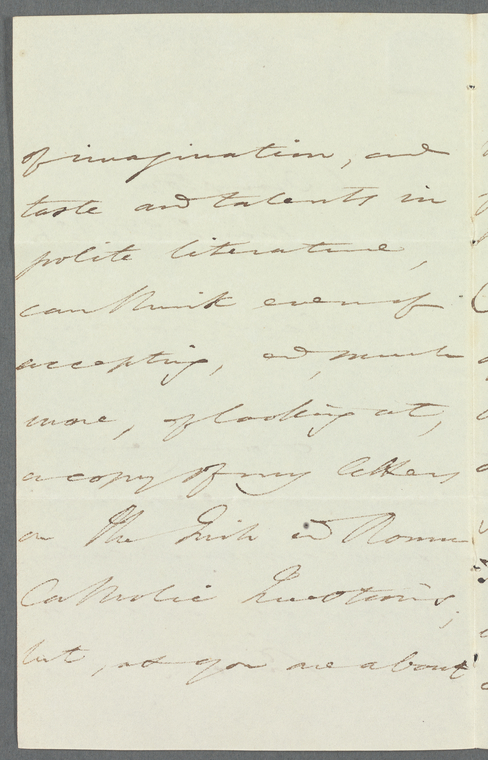 of imagination, and
taste and talents in
polite literature,
can think even of
accepting, and, much
more, of looking at,
a copy of my letters
on the Irish and Roman
Catholic Questions;
but, as you are about